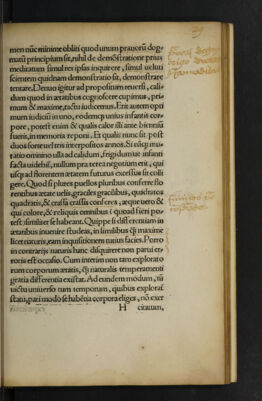 men nūc minime obliti quod unum prauorū dog-
matū principium sit, nihil de demōstratione prius
meditatum simul rei ipsius inquirere, simul ueluti
scientem quidnam demonstratio sit, demonstrare
tentare. Denuo igitur ad propositum reuersi, cali-
dum quod in ætatibus cognoscere cupimus, pri-
mum & maxime, tactu iudicemus. Erit autem opti
mum iudiciū in uno, eodemq; unius infantis cor-
pore, potest enim & qualis calor illi ante biennium
fuerit, in memoria reponi. Et qualis nunc sit post
duos forte uel tris interpositos annos. Si
ratio enim nō ulla ad calidum, frigidumue infanti
facta uidebit, nullum præterea negotium erit, qui
usq; ad florentem ætatem futurus excessus sit colli
gere. Quod si plures puellos pluribus conferre flo
rentibus ætate uelis, graciles gracilibus, quadratos
quadratis, & crassa crassis conferes, æque uero &
qui colore, & reliquis omnibus quoad fieri po-
test similes se habeant. Quippe si differentiam in
ætatibus inuenire studeas, in similibus q̃ maxime
licet naturis, eam inquisitionem tutius facies. Porro
in contrarijs naturis hanc disquirere non parui er-
roris est occasio. Cum interim non tam explorato
rum corporum ætatis, q̃ naturalis temperamenti
gratia differentia existat. Ad eundem modum, tū
uictu uniuerso tum temporum, quibus explorāt
statu, pari modo se habētia corpora eliges, nō exer
H citatum,